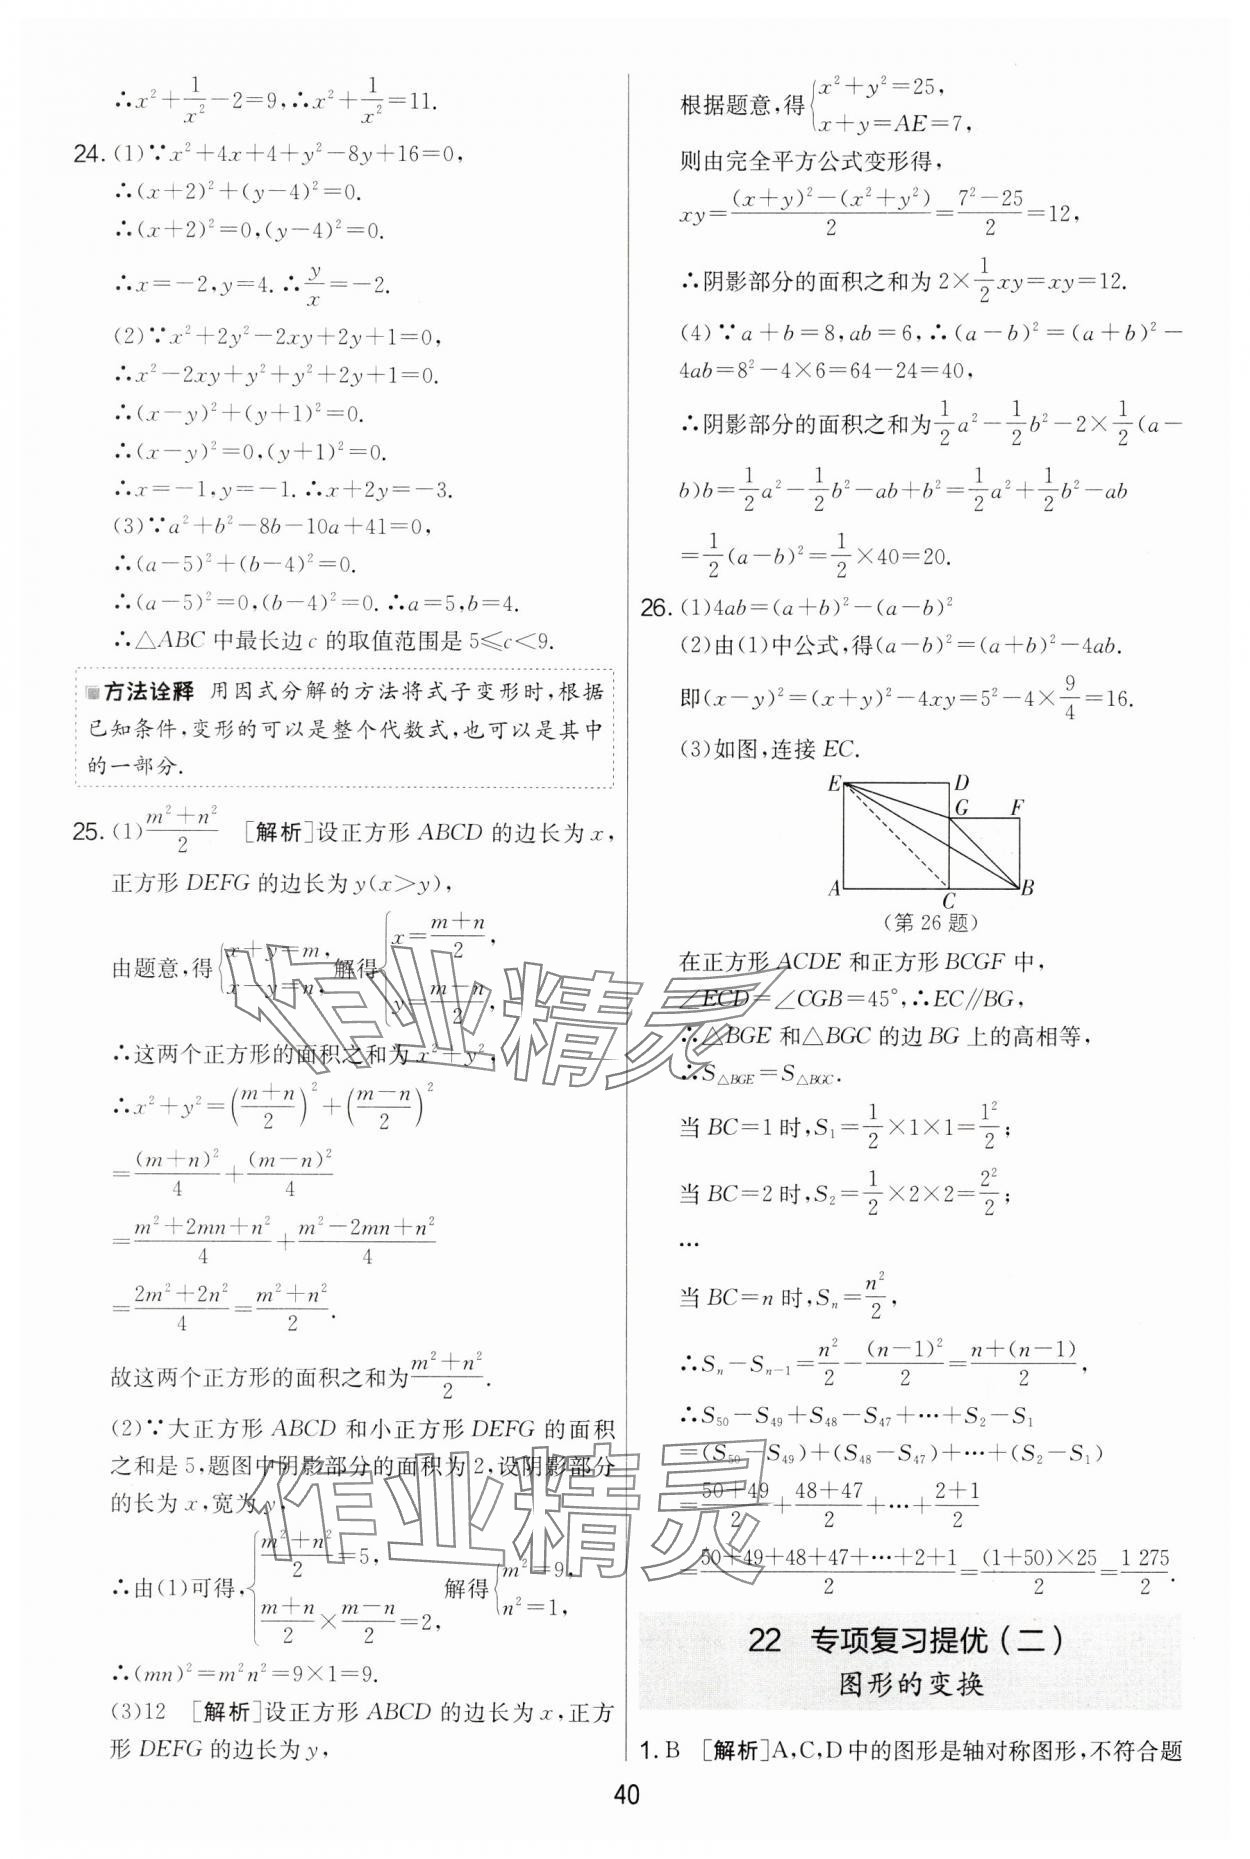 ∴x²+1/x²-2=9,∴x²+1/x²=11.
24. (1)∵x²+4x+4+y²-8y+16=0,
∴(x+2)²+(y-4)²=0.
∴(x+2)²=0,(y-4)²=0.
∴x=-2,y=4.∴y/x=-2.
(2)∵x²+2y²-2xy+2y+1=0,
∴x²-2xy+y²+y²+2y+1=0.
∴(x-y)²+(y+1)²=0.
∴(x-y)²=0,(y+1)²=0.
∴x=-1,y=-1.∴x+2y=-3.
(3)∵a²+b²-8b-10a+41=0,
∴(a-5)²+(b-4)²=0.
∴(a-5)²=0,(b-4)²=0.∴a=5,b=4.
∴△ABC中最长边c的取值范围是5≤c<9.
方法诠释 用因式分解的方法将式子变形时,根据
已知条件,变形的可以是整个代数式,也可以是其中
的一部分.
25. (1)(m²+n²)/2 [解析]设正方形ABCD的边长为x,
正方形DEFG的边长为y(x>y),
由题意,得{x+y=m, x-y=n, 解得{x=(m+n)/2, y=(m-n)/2,
∴这两个正方形的面积之和为x²+y²,
∴x²+y²=((m+n)/2)²+((m-n)/2)²
=(m+n)²/4+(m-n)²/4
=(m²+2mn+n²)/4+(m²-2mn+n²)/4
=(2m²+2n²)/4=(m²+n²)/2.
故这两个正方形的面积之和为(m²+n²)/2.
(2)∵大正方形ABCD和小正方形DEFG的面积
之和是5,题图中阴影部分的面积为2,设阴影部分
的长为x,宽为y,
∴由(1)可得,{(m²+n²)/2=5, (m+n)/2×(m-n)/2=2, 解得{m²=9, n²=1,
∴(mn)²=m²n²=9×1=9.
(3)12 [解析]设正方形ABCD的边长为x,正方
形DEFG的边长为y,
根据题意,得{x²+y²=25, x+y=AE=7,
则由完全平方公式变形得,
xy=((x+y)²-(x²+y²))/2=(7²-25)/2=12,
∴阴影部分的面积之和为2×1/2xy=xy=12.
(4)∵a+b=8,ab=6,∴(a-b)²=(a+b)²-
4ab=8²-4×6=64-24=40,
∴阴影部分的面积之和为1/2a²-1/2b²-2×1/2(a-
b)b=1/2a²-1/2b²-ab+b²=1/2a²+1/2b²-ab
=1/2(a-b)²=1/2×40=20.
26. (1)4ab=(a+b)²-(a-b)²
(2)由(1)中公式,得(a-b)²=(a+b)²-4ab.
即(x-y)²=(x+y)²-4xy=5²-4×9/4=16.
(3)如图,连接EC.
E D
G F
A C B
(第26题)
在正方形ACDE和正方形BCGF中,
∠ECD=∠CGB=45°,∴EC∥BG,
∴△BGE和△BGC的边BG上的高相等,
∴S△BGE=S△BGC.
当BC=1时,S₁=1/2×1×1=1²/2;
当BC=2时,S₂=1/2×2×2=2²/2;
…
当BC=n时,Sₙ=n²/2,
∴Sₙ-Sₙ₋₁=n²/2-(n-1)²/2=(n+(n-1))/2,
∴S₅₀-S₄₉+S₄₈-S₄₇+…+S₂-S₁
=(S₅₀-S₄₉)+(S₄₈-S₄₇)+…+(S₂-S₁)
=(50+49)/2+(48+47)/2+…+(2+1)/2
=(50+49+48+47+…+2+1)/2=((1+50)×25)/2=1 275/2.
22 专项复习提优(二)
图形的变换
1. B [解析]A,C,D中的图形是轴对称图形,不符合题
40
作业精灵
作业精灵